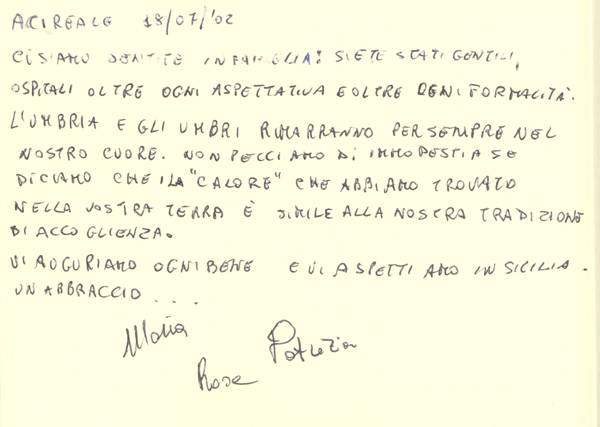 ACIREALE 18/07/'02
CI SIAMO SENTITE IN FAMIGLIA: SIETE STATI GENTILI,
OSPITALI OLTRE OGNI ASPETTATIVA E OLTRE OGNI FORMALITÀ.
L'UMBRIA E GLI UMBRI RIMARRANNO PER SEMPRE NEL
NOSTRO CUORE. NON PECCIAMO DI IMMODESTIA SE
DICIAMO CHE IL "CALORE" CHE ABBIAMO TROVATO
NELLA VOSTRA TERRA È SIMILE ALLA NOSTRA TRADIZIONE
DI ACCOGLIENZA.
VI AUGURIAMO OGNI BENE E VI ASPETTIAMO IN SICILIA.
UN ABBRACCIO . . .
Maria
Patrizia
Rosa